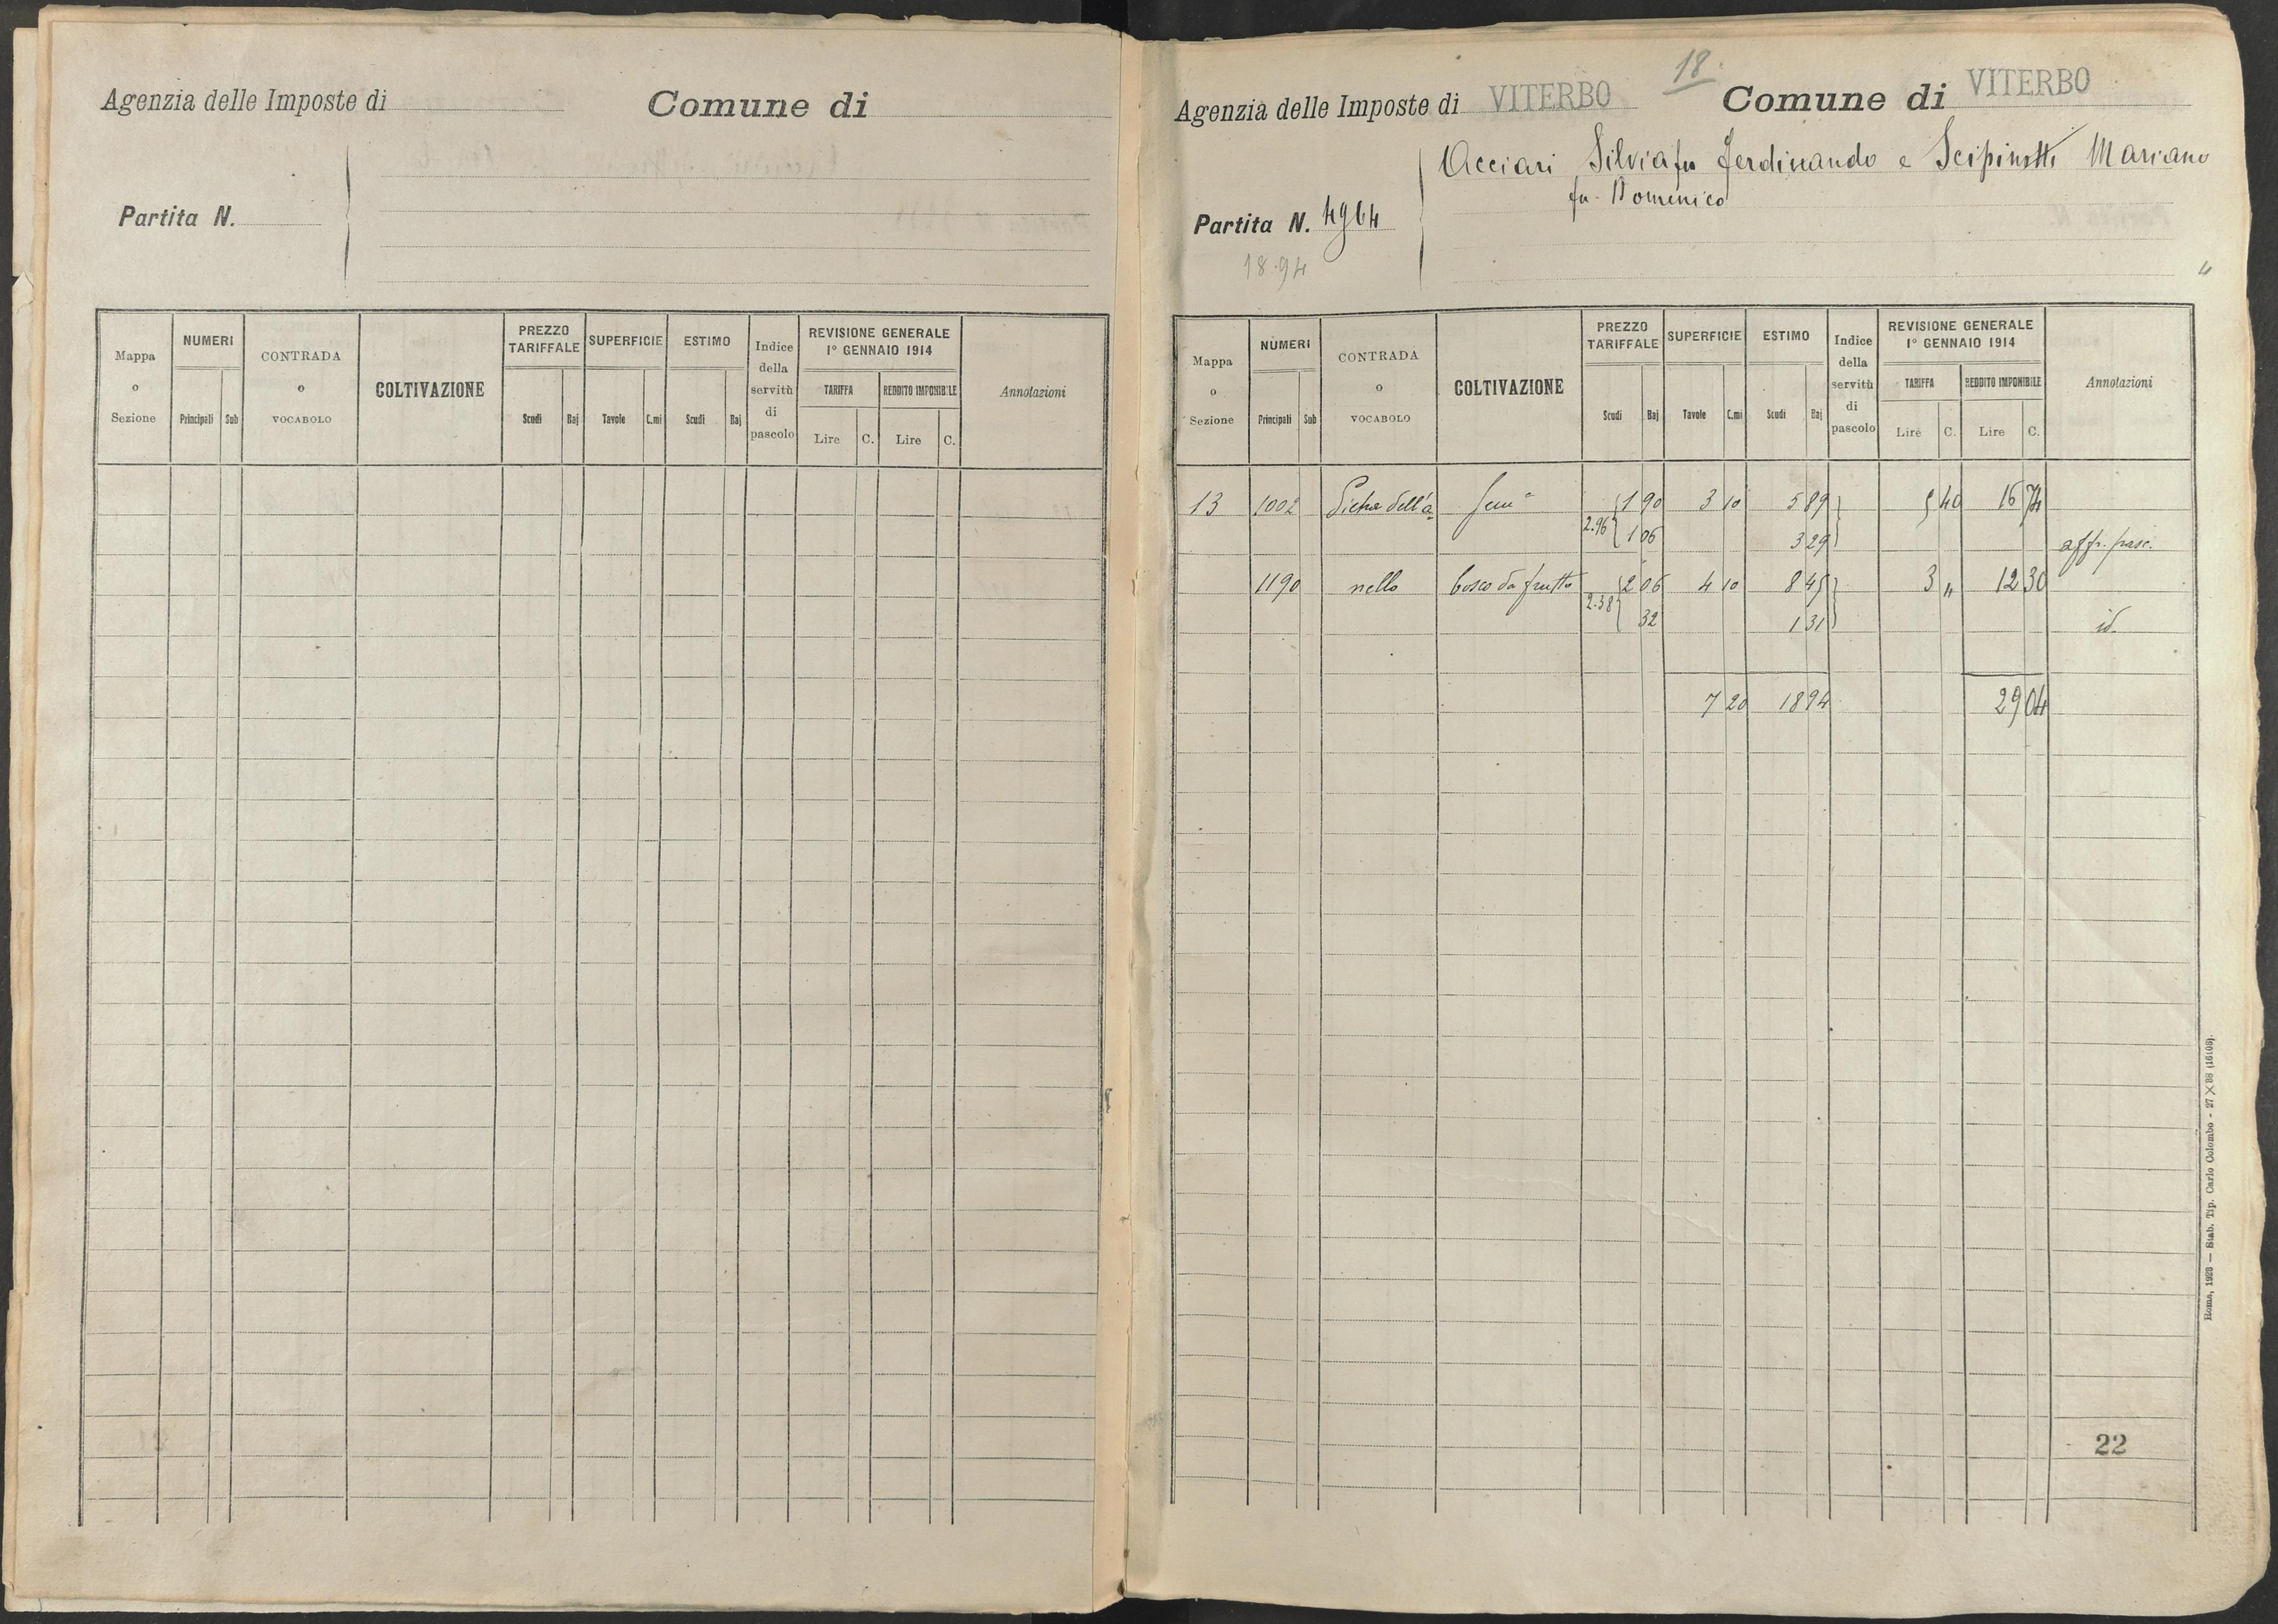 Agenzia delle Imposte di
Comune di
Partita N.
Mappa o Sezione
NUMERI
Principali Sub
CONTRADA o VOCABOLO
COLTIVAZIONE
PREZZO TARIFFALE
Scudi Baj
SUPERFICIE
Tavole C.mi
ESTIMO
Scudi Baj
Indice della servitù di pascolo
REVISIONE GENERALE
1° GENNAIO 1914
TARIFFA
Lire C.
REDDITO IMPONIBILE
Lire C.
Annotazioni
18
Agenzia delle Imposte di VITERBO
Comune di VITERBO
Acciari Silvia fu Ferdinando e Scipinotti Mariano
fu Domenico
Partita N. 4964
18.94
Mappa o Sezione
NUMERI
Principali Sub
CONTRADA o VOCABOLO
COLTIVAZIONE
PREZZO TARIFFALE
Scudi Baj
SUPERFICIE
Tavole C.mi
ESTIMO
Scudi Baj
Indice della servitù di pascolo
REVISIONE GENERALE
1° GENNAIO 1914
TARIFFA
Lire C.
REDDITO IMPONIBILE
Lire C.
Annotazioni
13 1002 1 90 3 10 5 89 5 40 16 74
2.96 1 06 3 29 aff. pasc.
1190 nello bosco da frutto 2 06 4 10 8 45 3 " 12 30
2.38 32 1 31 id.
7 20 18 94 29 04
22
Roma, 1923 — Stab. Tip. Carlo Colombo - 27 X 38 (16108).